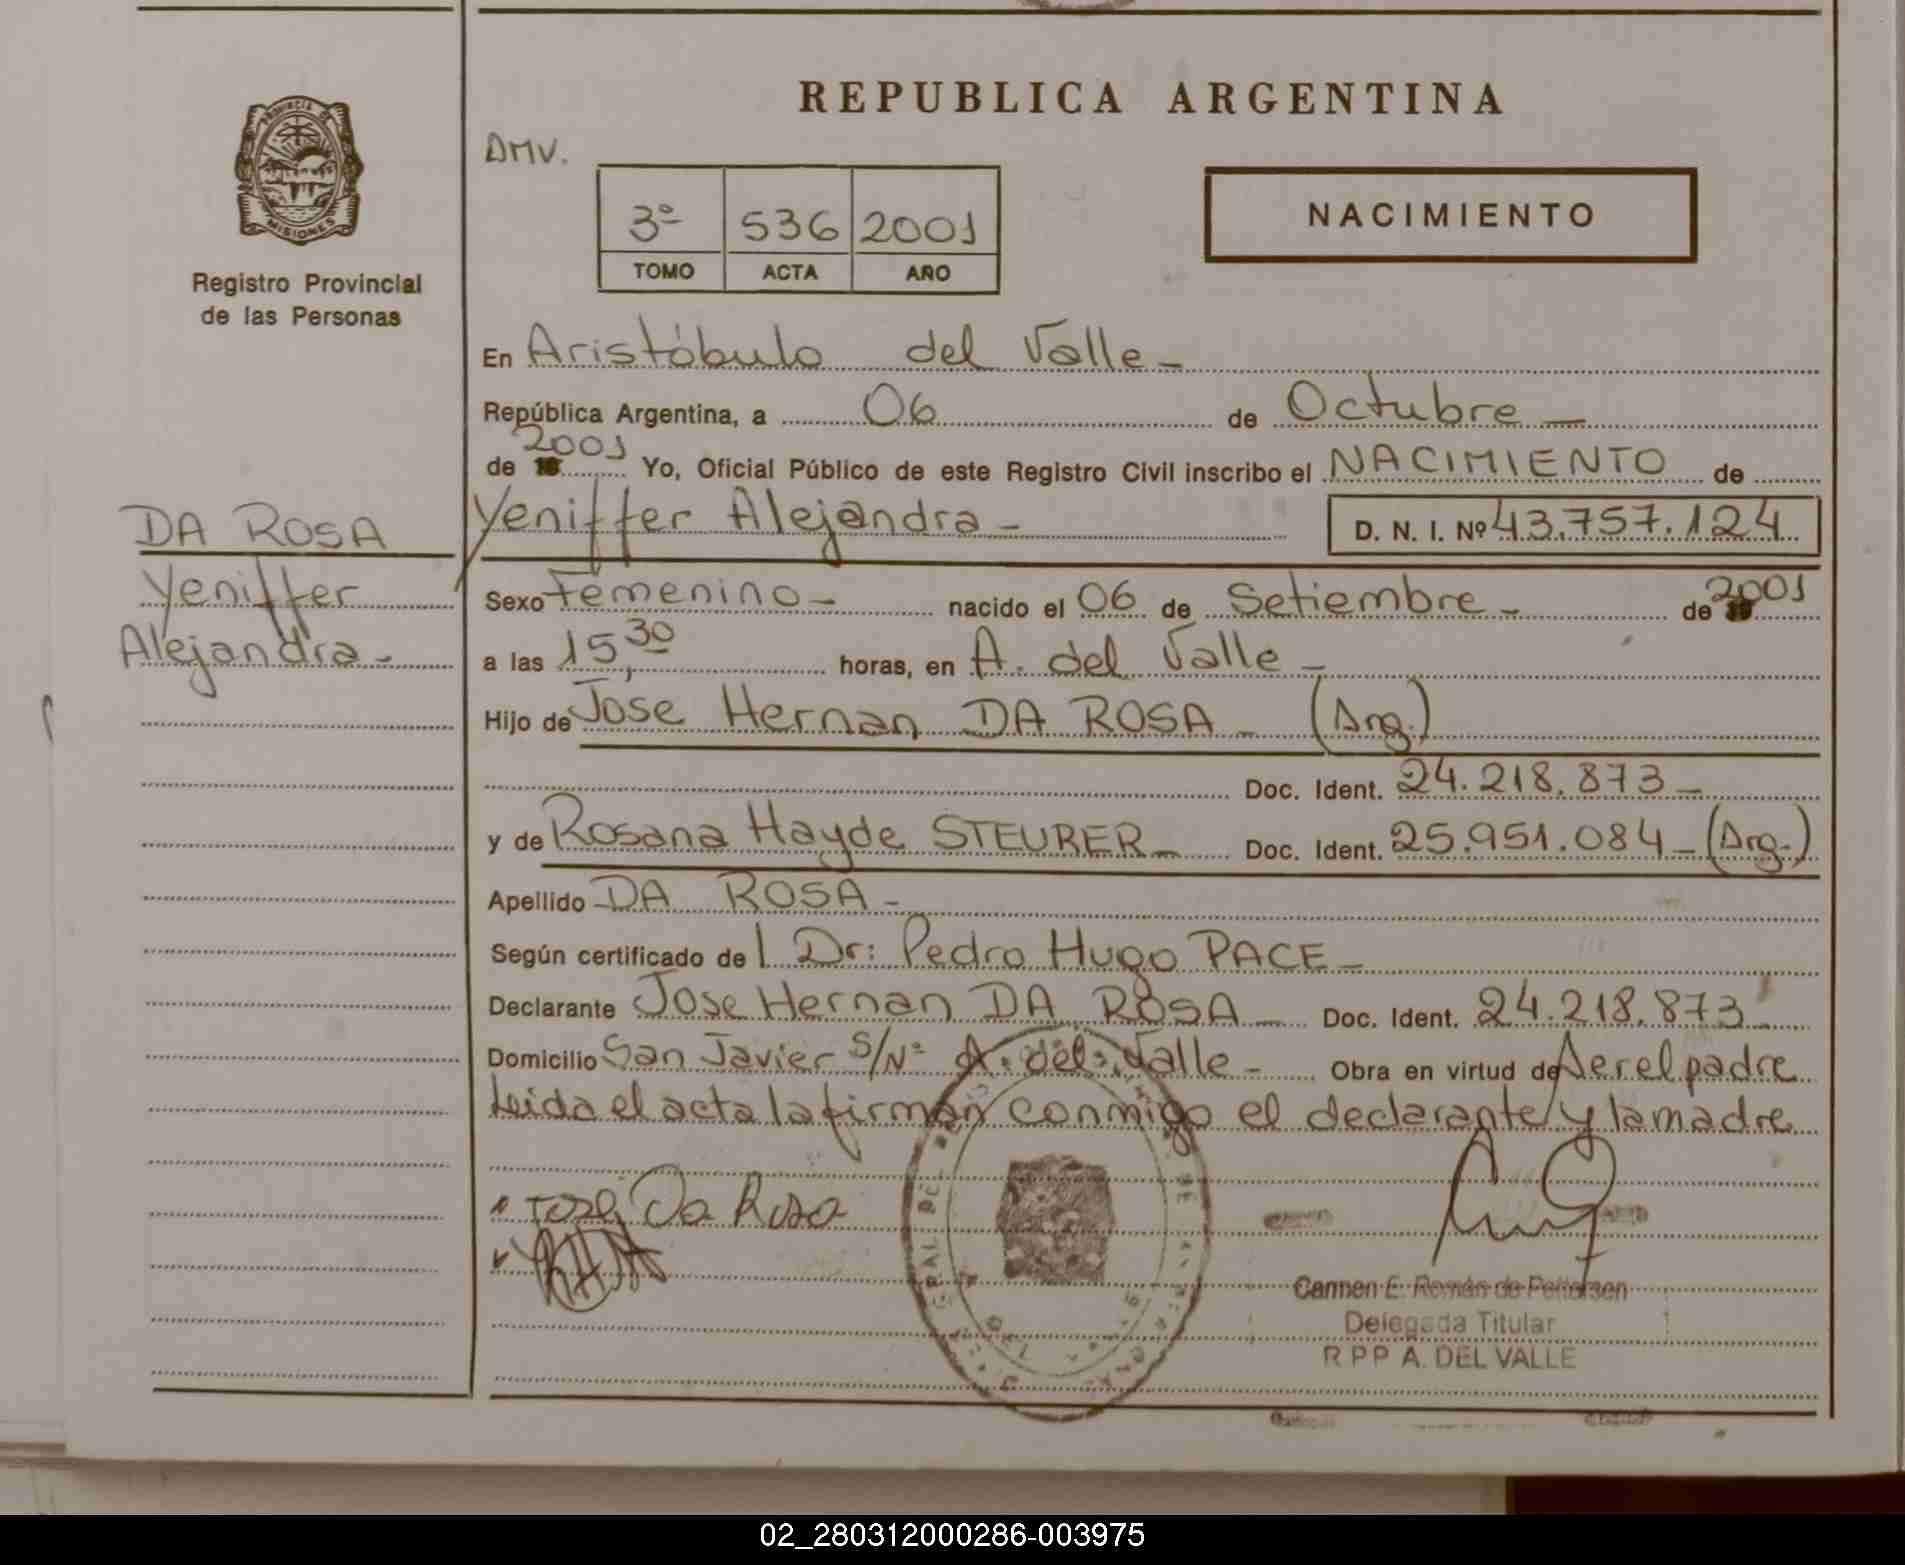 REPUBLICA ARGENTINA
DMV.
3º 536 2001
TOMO ACTA AÑO
NACIMIENTO
PROVINCIA DE MISIONES
Registro Provincial
de las Personas
En Aristóbulo del Valle -
República Argentina, a 06 de Octubre -
de 2001 Yo, Oficial Público de este Registro Civil inscribo el NACIMIENTO de
Yeniffer Alejandra - D. N. I. Nº 43.757.124
DA ROSA
Yeniffer
Alejandra -
Sexo Femenino - nacido el 06 de Setiembre - de 2001
a las 15,30 horas, en A. del Valle -
Hijo de Jose Hernan DA ROSA - (Arg.)
Doc. Ident. 24.218.873 -
y de Rosana Hayde STEURER - Doc. Ident. 25.951.084 - (Arg.)
Apellido DA ROSA -
Según certificado de l Dr: Pedro Hugo PACE -
Declarante Jose Hernan DA ROSA - Doc. Ident. 24.218.873 -
Domicilio San Javier S/Nº A. del Valle - Obra en virtud de ser el padre
Leida el acta la firman conmigo el declarante y la madre
José Da Rosa
Carmen E. Román de Pettersen
Delegada Titular
R P P A. DEL VALLE
02_280312000286-003975